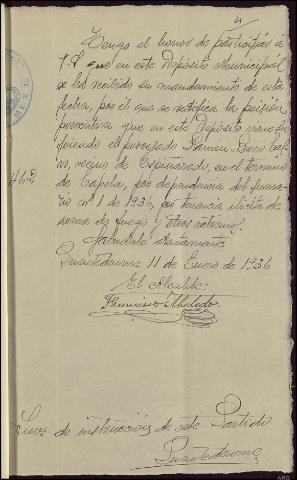 4
Tengo el honor de participar á
V.S. que en este Depósito Municipal
se ha recibido su mandamiento de esta
fecha, por el que se ratifica la prisión
preventiva que en este Depósito viene su
friendo el procesado Ramón
vecino de Espiñaredo, en el término
de Capela, por dependencia del suma-
rio nº 1 de 1936, por tenencia ilícita de
arma de fuego y otros extremos.
Salúdole atentamente
Puentedeume 11 de Enero de 1936
El Alcaide:
Francisco
462
Juez de instrucción de este Partido
Puentedeume